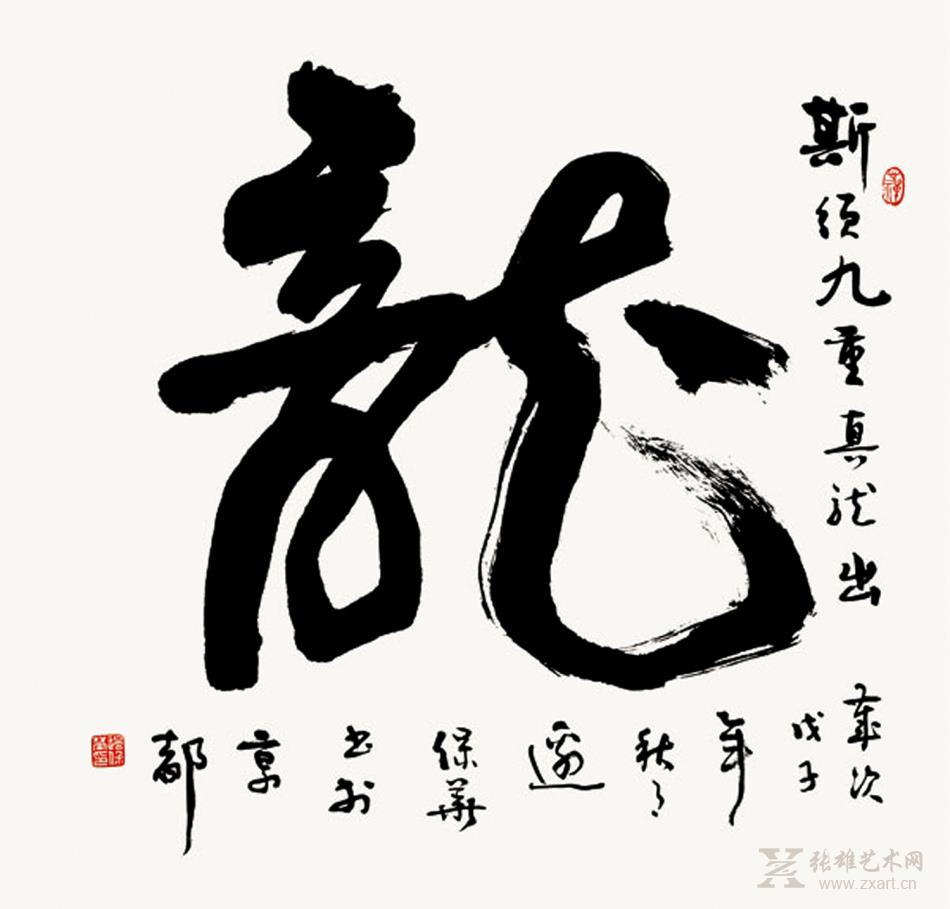 龍
斯須九重真龍出
歲次
戊子
年
秋月
邊
保華
書於
京
都
张雄艺术网
www.zxart.cn